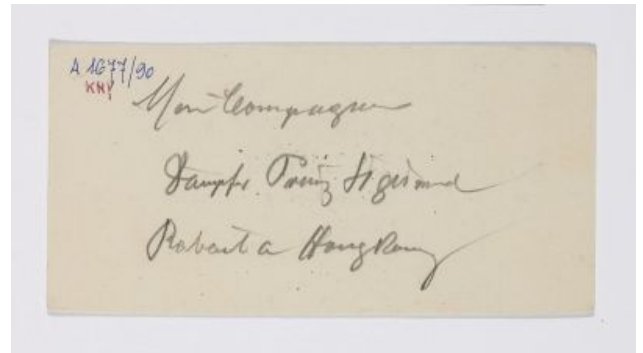 A 1677/90
KNY
Mon Compagnon
Dampfr. Prinz Sigismund
Rabaul a Hong Kong